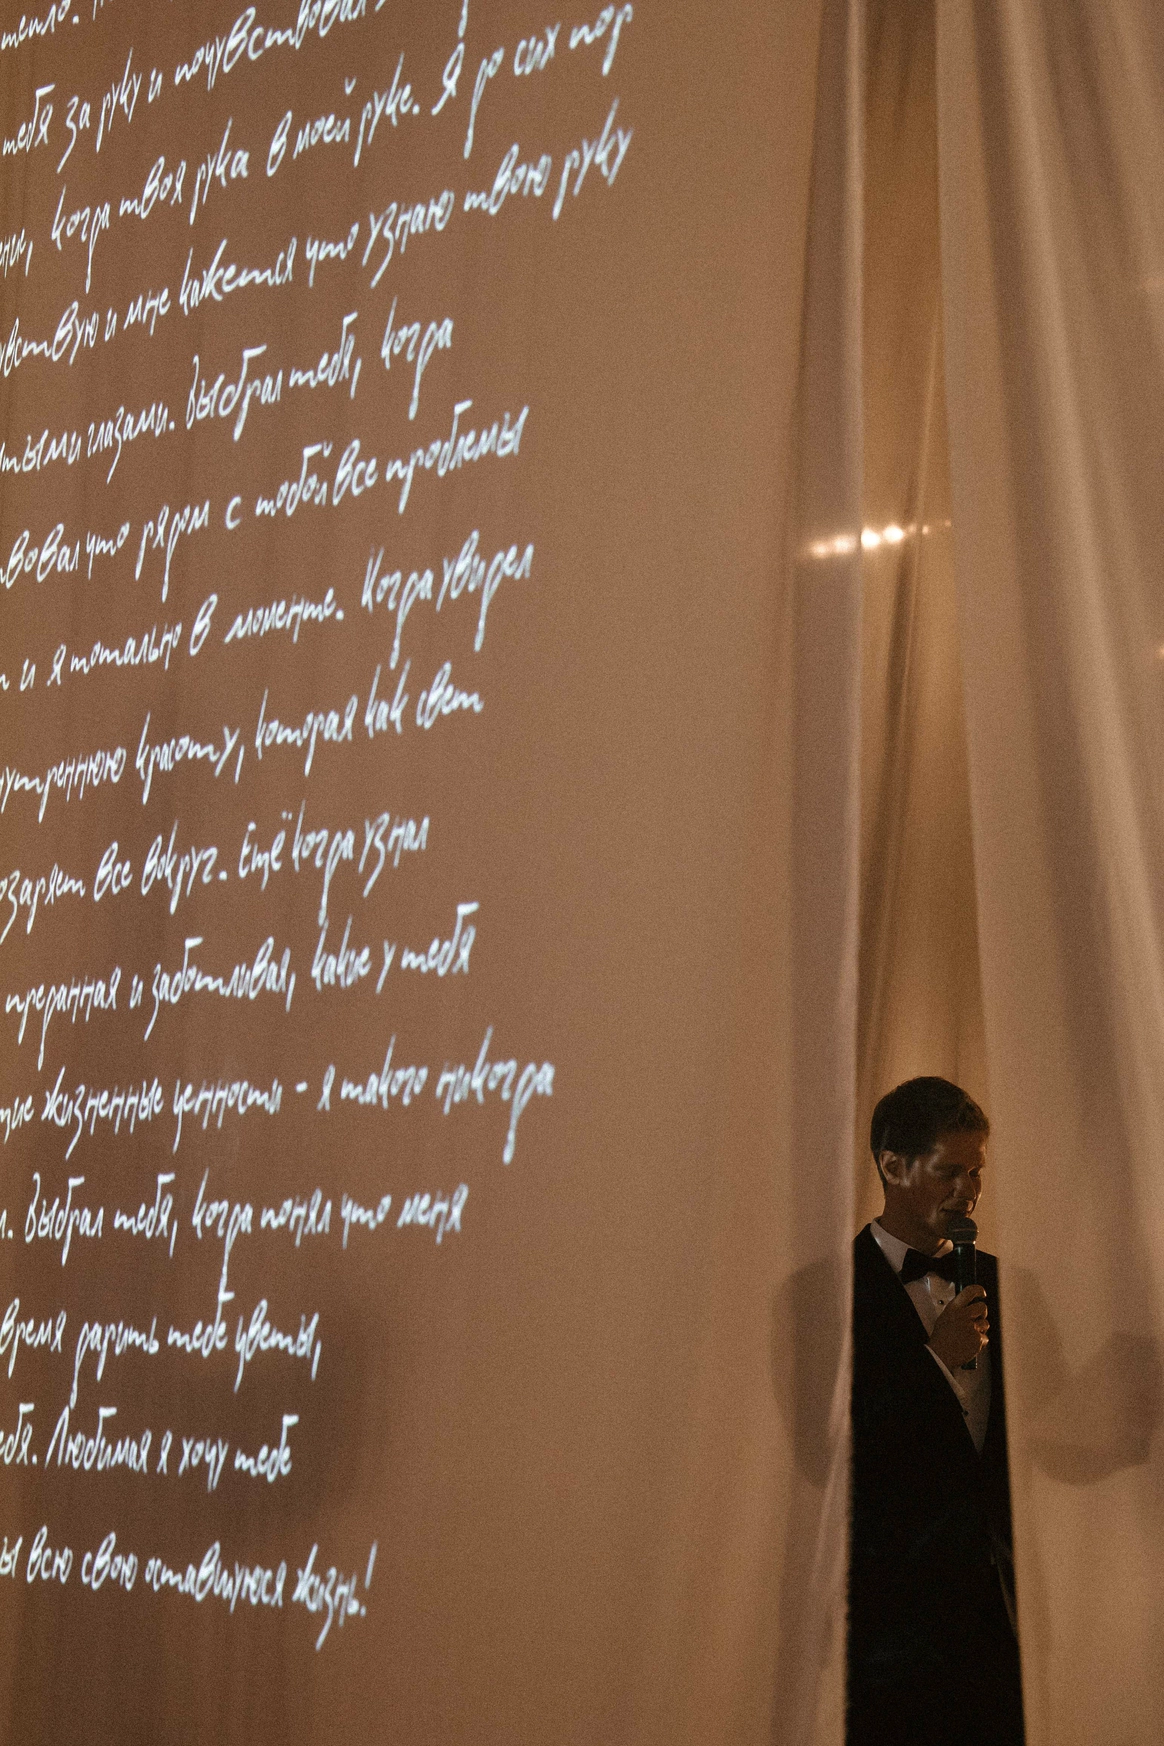 тепло.
тебя за руку и почувствовал
когда твоя рука в моей руке. Я до сих пор
и мне кажется что узнаю твою руку
глазами. Выбрал тебя, когда
что рядом с тобой все проблемы
и я тотально в моменте. Когда увидел
красоту, которая как свет
все вокруг. Ещё когда узнал
преданная и заботливая, какие у тебя
жизненные ценности - я такого никогда
Выбрал тебя, когда понял что меня
время дарить тебе цветы,
Любимая я хочу тебе
всю свою оставшуюся жизнь!